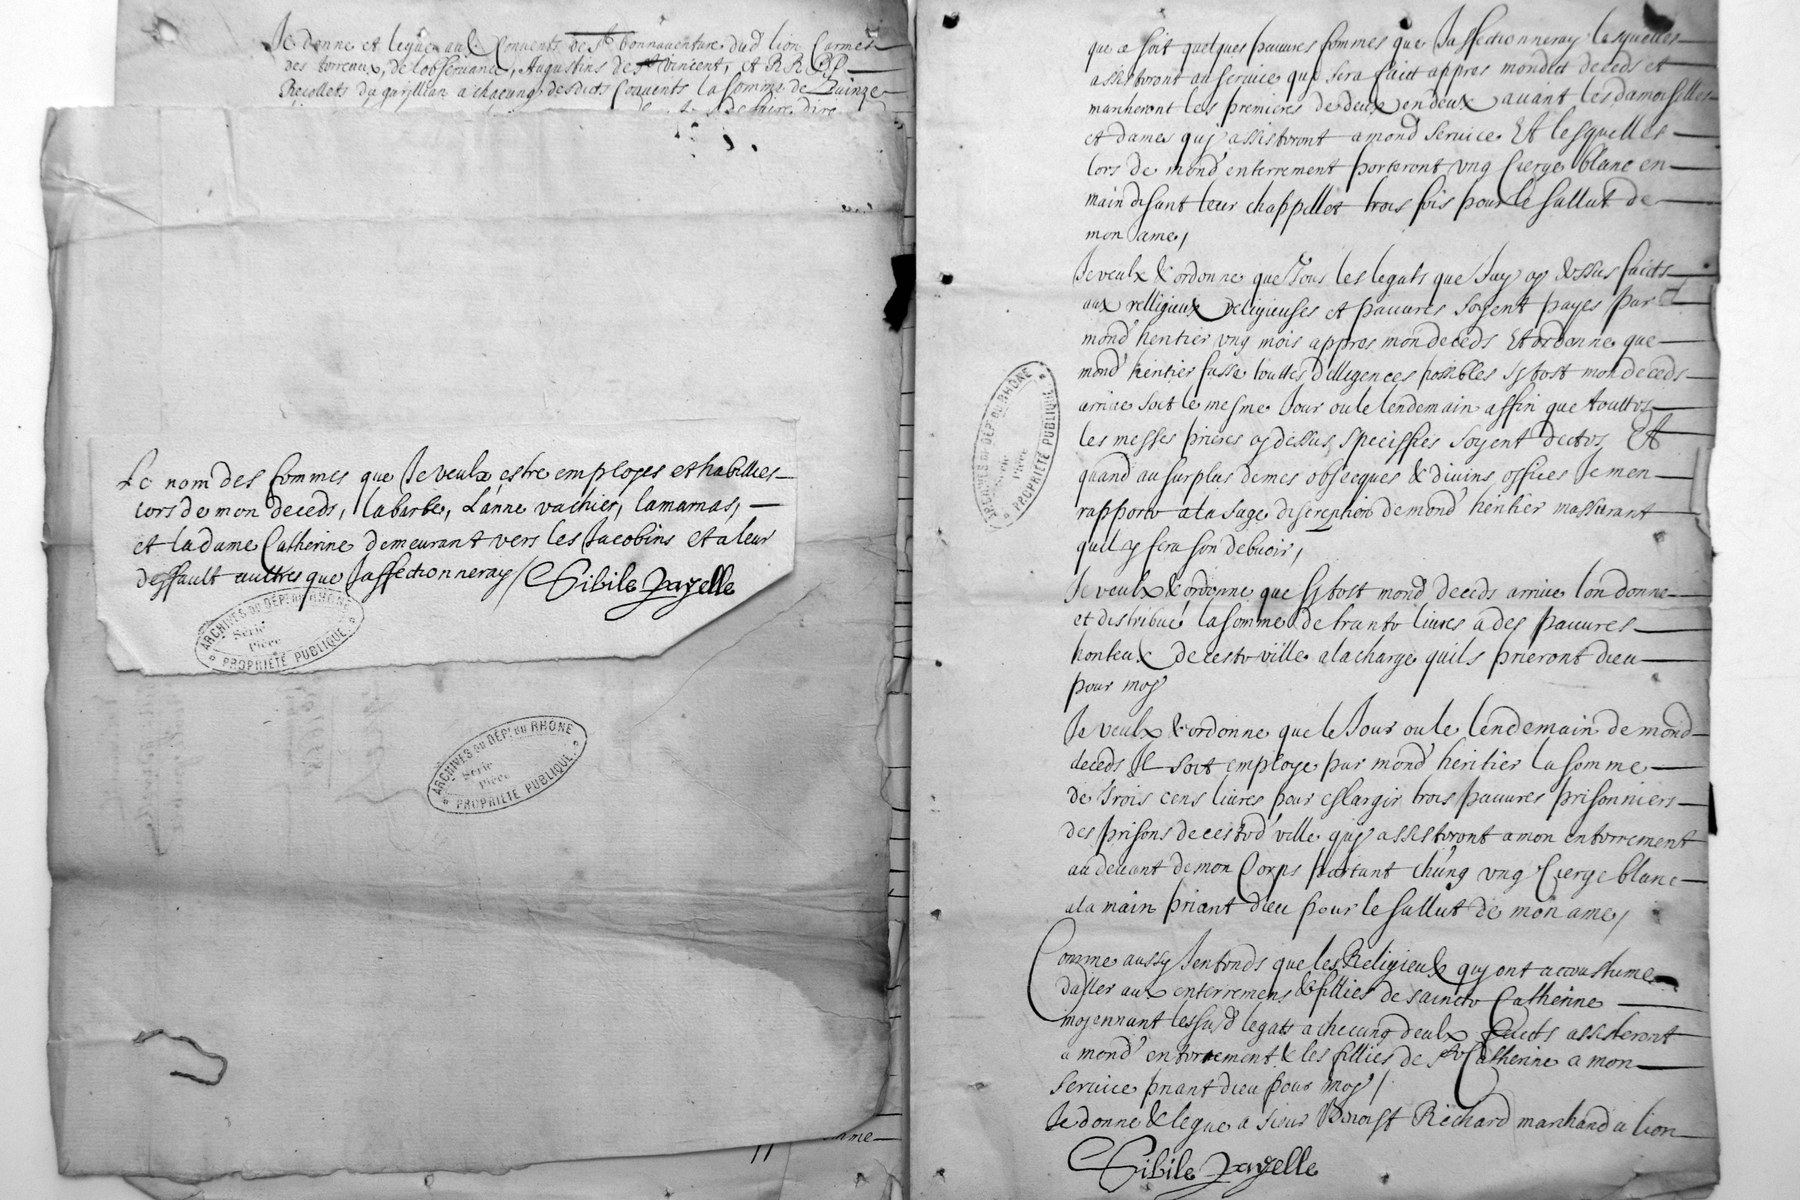 Je donne et legue aux Couvents de St bonnaventure dud lion Carmes
des terreaux, de lobservance, Augustins de St vincent, et RR PP
Recollets du gurillian a chacung desdicts Couvents la somme de Quinze
de faire dire
Le nom des femmes que Je veulx estre employes et habilles
lors de mon deceds, labarbe, Lanne vachier, lamamas,
et la dame Catherine demeurant vers les Jacobins et a leur
deffault aultres que Jaffectionneray / Sibile Zayelle
ARCHIVES DU DÉPT. DU RHÔNE
Série
Pièce
PROPRIÉTÉ PUBLIQUE
ARCHIVES DU DÉPT. DU RHÔNE
Série
Pièce
PROPRIÉTÉ PUBLIQUE
que a soit quelques pauvres femmes que Jaffectionneray lesquelles
assisteront au service que sera faict appres mondict deceds et
marcheront les premieres de deux en deux avant les damoiselles
et dames quy assisteront a mond service Et lesquelles
lors de mond enterrement porteront ung Cierge blanc en
main disant leur chappellet trois fois pour le sallut de
mon ame,
Je veulx & ordonne que Tous les legats que Jay cy dessus faicts
aux relligieux Religieuses et pauvres soyent payes par
mond heritier ung mois appres mon deceds Et ordonne que
mond heritier fasse touttes dilligences possibles sytost mon deceds
arrive soit le mesme Jour ou le lendemain affin que touttes
les messes prieres cy dessus speciffies soyent dictes, Et
quand au surplus de mes obseques & divins offices Je men
rapporte a la sage discreption de mond heritier massurant
quil y fera son debvoir,
Je veulx & ordonne que sytost mond deceds arrive lon donne
et distribue la somme de trante livres a des pauvres
honteux de ceste ville a la charge quils prieront dieu
pour moy
Je veulx & ordonne que le Jour ou le lendemain de mond
deceds Il soit employe par mond heritier la somme
de Trois cens livres pour eslargir trois pauvres prisonniers
des prisons de ceste d' ville quy assisteront a mon enterrement
au devant de mon Corps portant ch'ung ung Cierge blanc
a la main priant dieu pour le sallut de mon ame,
Comme aussy Jentends que les Religieulx quy ont accoustume
daller aux enterremens & fillies de saincte Catherine
moyennant lessusd legats a chacung deulx faicts assisteront
a mond enterrement & les fillies de Ste Catherine a mon
service priant dieu pour moy /
Je donne & legue a sieur Benoist Richard marchand a lion
Sibile Zayelle
ARCHIVES DU DÉPT. DU RHÔNE
Série
Pièce
PROPRIÉTÉ PUBLIQUE